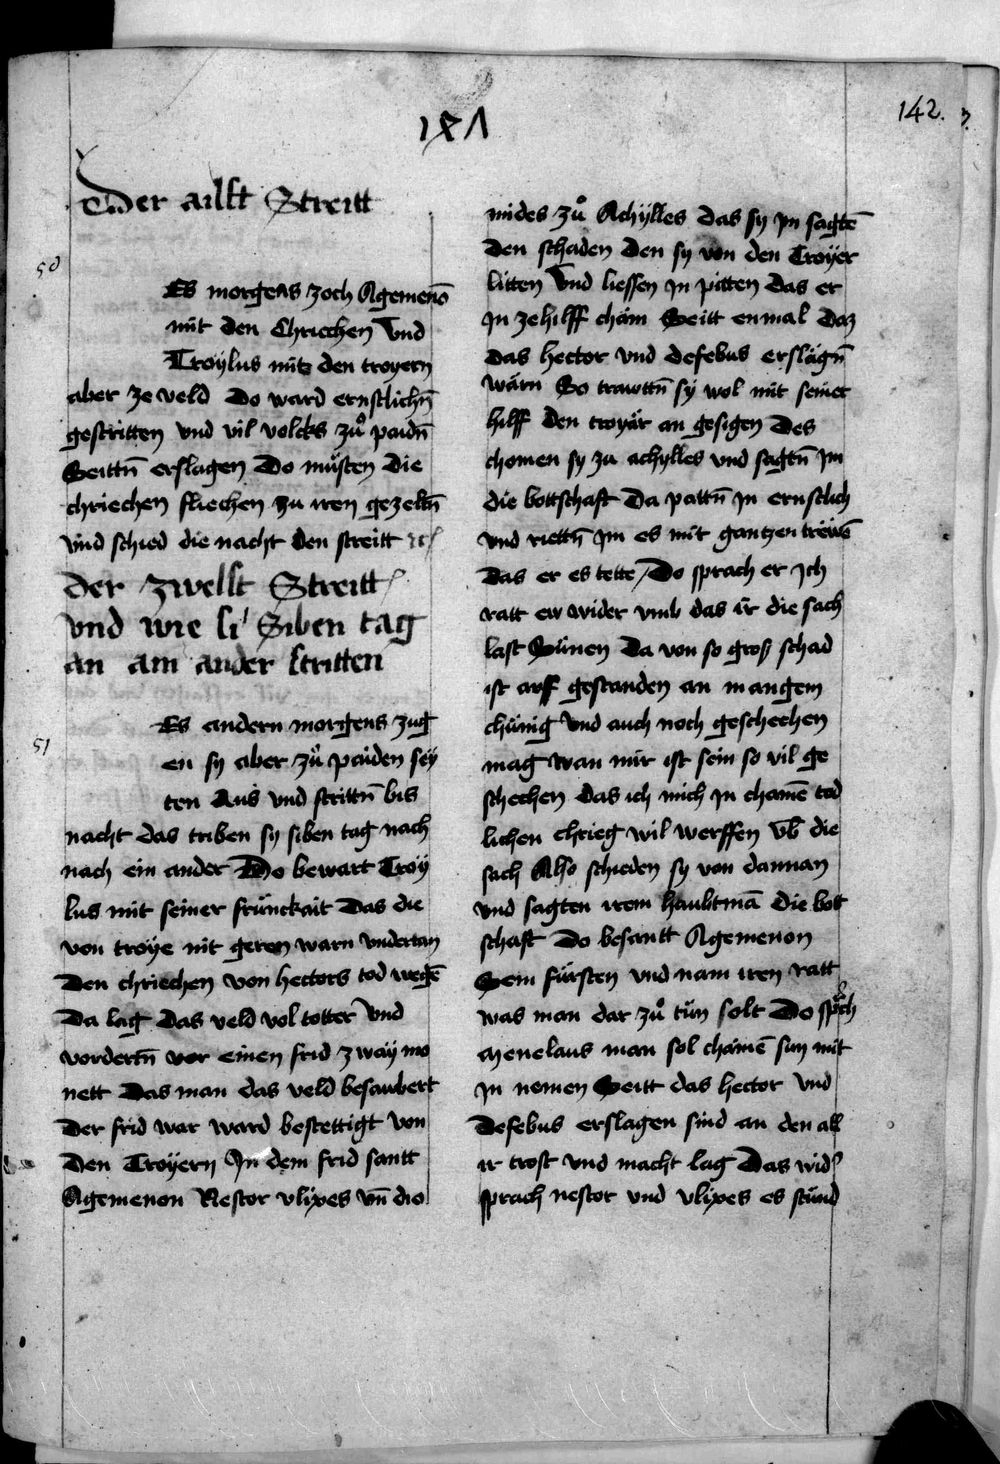 142.
181
Der ailft Streitt
50
Es morgens zoch Agemenō
mit den Chriechen Vnd
Troylus mitz den troyern
aber ze veld Do ward ernstlichn̄
gestritten vnd vil volcks zů paidn̄
Seittn̄ erslagen Do můsten die
chriechen fliechen zu iren gezeltn̄
vnd schied die nacht den streitt
der zwelft Streitt
vnd wie si Siben tag
an am ander stritten
51
Es andern morgens zug
en sy aber zů paiden sey
ten Aus vnd strittn̄ bis
nacht das triben sy siben tag nach
nach ein ander Do bewart Troy
lus mit seiner frünckait Das die
von troye nit geren warn vndertan
Den chriechen von hectors tod wegē
Da lag das veld vol totter Vnd
vordertn̄ vor einen frid zway mo
nett Das man das veld besaubert
Der frid war ward bestettigt von
Den Troyern In dem frid santt
Agemenon Nestor vlixes vn̄ dio
mides zů Achylles das sy im sagtē
den schaden den sy von den Troyer
litten Vnd liessen in pitten das er
in zehilff chäm Seitt enmal daz
das hector vnd defebus erslagn̄
wärn So trawttn̄ sy wol mit seiner
hilff den troyär an gesigen Des
chomen sy zu achylles vnd sagtn̄ im
die bottschaft Da pattn̄ in ernstlich
vnd riettn̄ im es mit gantzen trewē
das er es tette Do sprach er ich
ratt ew wider vmb das ir die sach
last Sünen Da von so groß schad
ist arff gestanden an mangem
chünig vnd auch noch geschechen
mag wan mir ist sein so vil ge
schechen das ich mich in chainē tod
lichen chrieg wil werffen vb̄ die
sach Also schieden sy von dannan
vnd sagten irem haubtmā die bot
schaft Do besantt Agemenon
Sein fürsten vnd nam iren ratt
was man dar zů tün solt Do sprch
Menelaus man sol chainē sun mit
in nemen Seitt das hector vnd
Defebus erslagen sind an den all
ir trost vnd macht lag Das wid
sprach nestor vnd vlixes es stünd